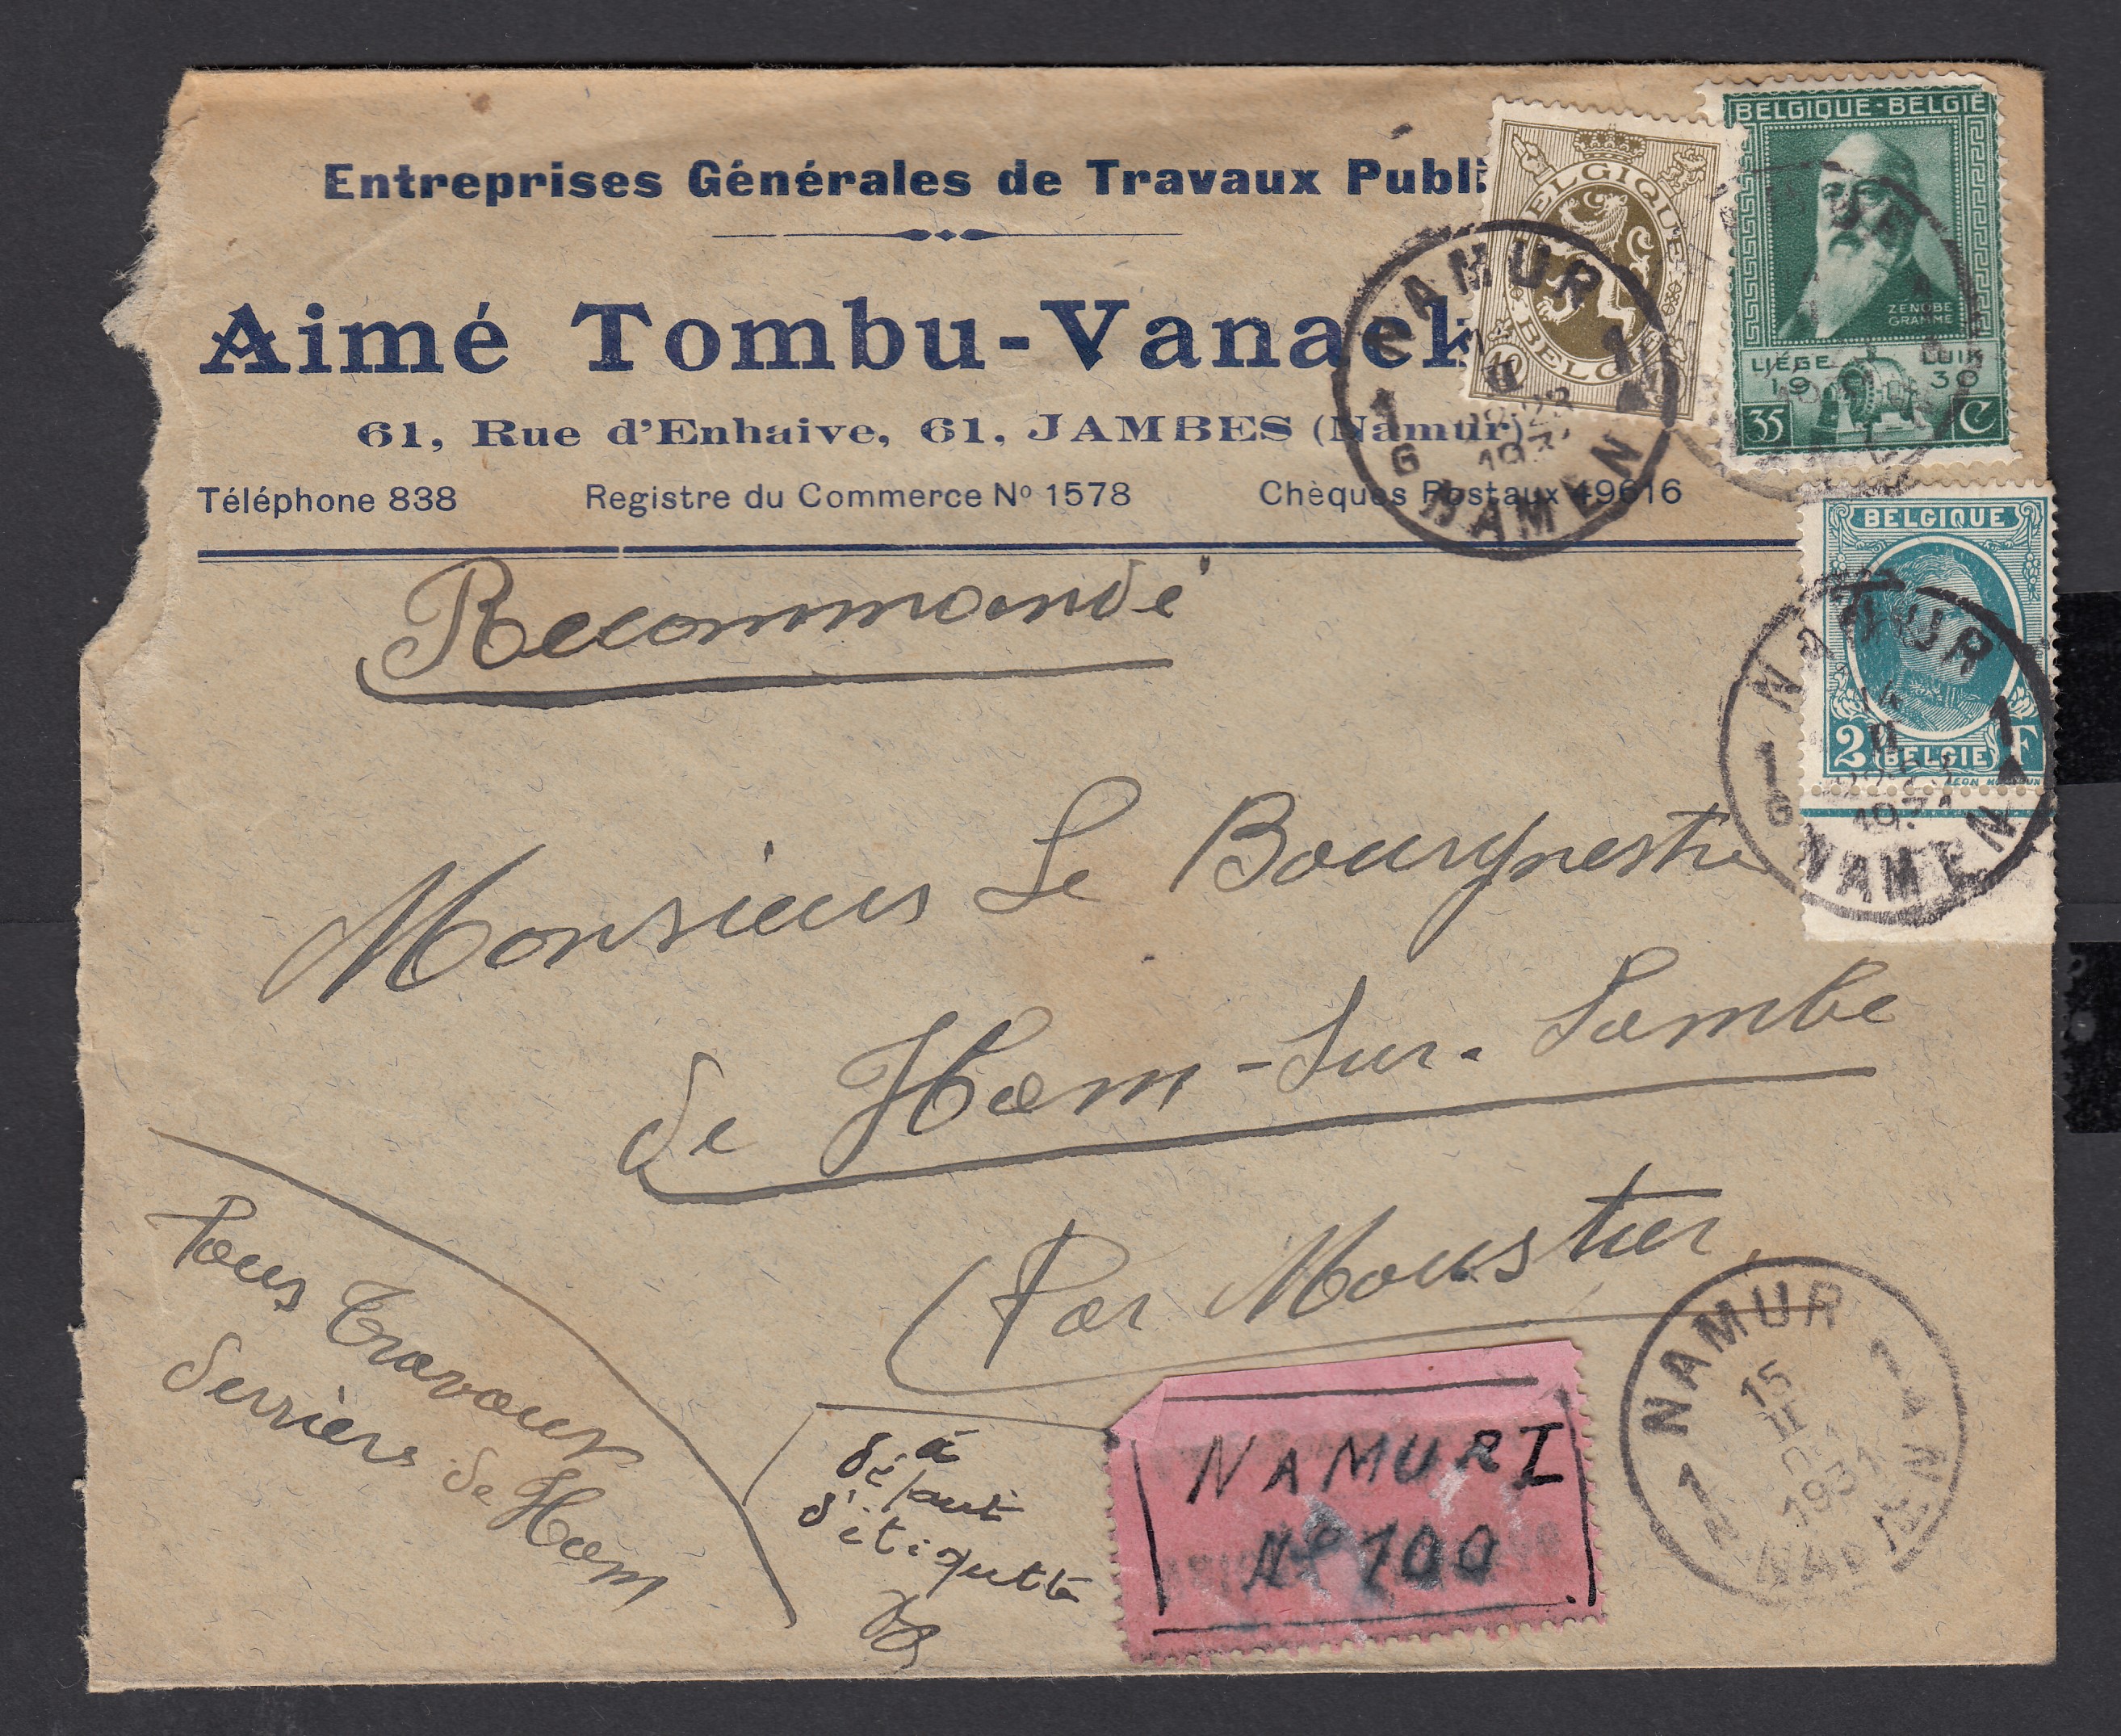 Entreprises Générales de Travaux Publi
Aimé Tombu-Vanaek
61, Rue d'Enhaive, 61, JAMBES (Namur)
Téléphone 838 Registre du Commerce Nº 1578 Chèques Postaux 49616
BELGIQUE
BELG
40
BELGIQUE-BELGIË
ZENOBE
GRAMME
LIÉGE LUIK
19 30
35 C
BELGIQUE
2 BELGIE F
NAMUR
1 1
G
NAMEN
NAMUR
14
II
1 1
G
NAMEN
Recommandé
Monsieur Le Bourgmestre
de Ham-Sur-Sambe
Par Moustier
Pour Travaux
derrière de Ham
à
défaut
d'étiquette
NAMUR I
Nº 100
NAMUR
15
II
1931
1 1
N
NAMEN